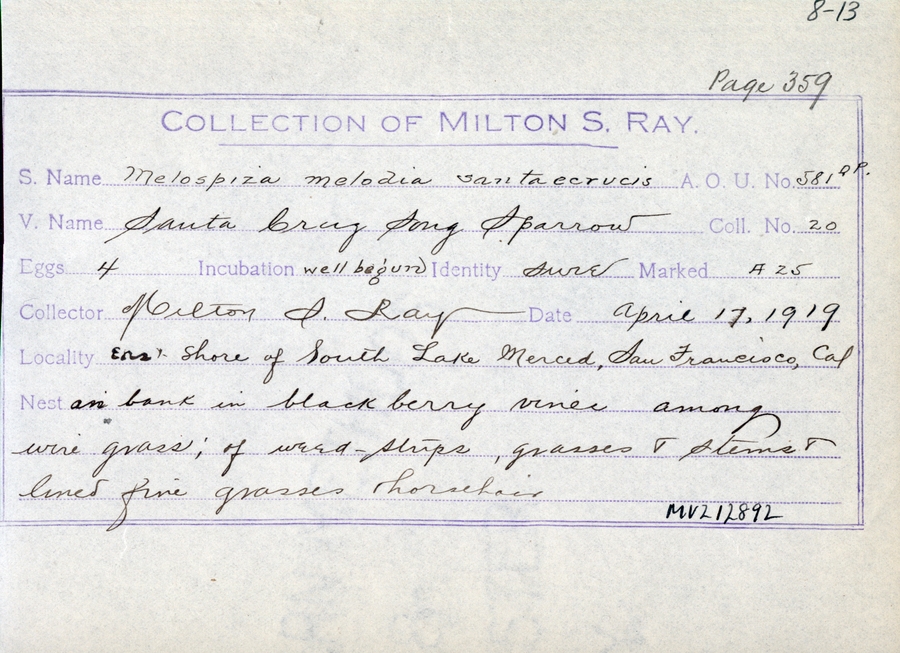 8-13
Page 359
COLLECTION OF MILTON S. RAY.
S. Name Melospiza melodia santaecrucis A. O. U. No. 581 QP.
V. Name Santa Cruz Song Sparrow Coll. No. 20
Eggs 4 Incubation well begun Identity sure Marked A 25
Collector Milton S. Ray Date April 17, 1919
Locality East Shore of South Lake Merced, San Francisco, Cal
Nest in bank in blackberry vines among
wire grass; of weed-strips, grasses & stems &
lined fine grasses & horsehair
MVZ 12892